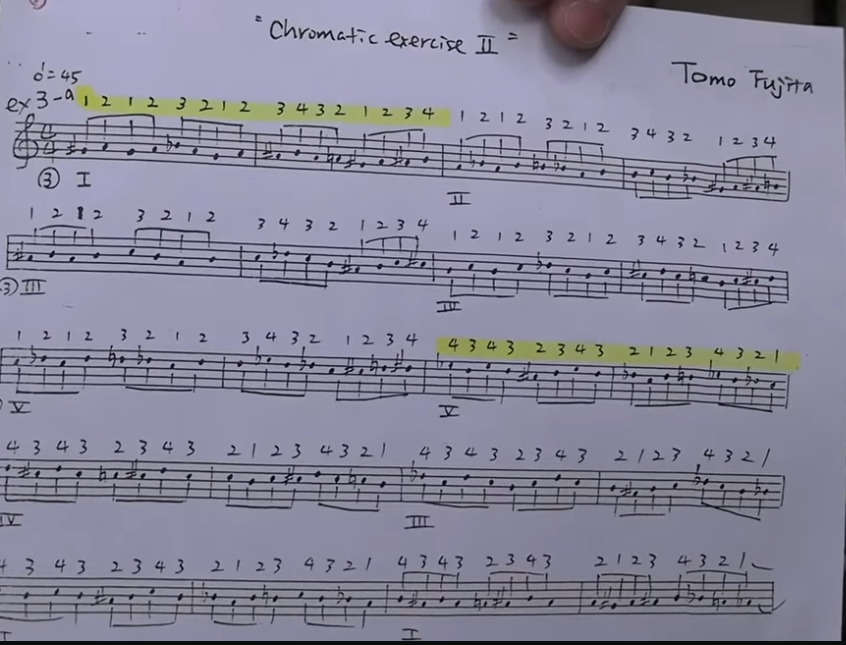 "Chromatic exercise II"
Tomo Fujita
♩=45
ex 3-a 1 2 1 2 3 2 1 2 3 4 3 2 1 2 3 4 1 2 1 2 3 2 1 2 3 4 3 2 1 2 3 4
4 4
③ I II
1 2 1 2 3 2 1 2 3 4 3 2 1 2 3 4 1 2 1 2 3 2 1 2 3 4 3 2 1 2 3 4
③ III IV
1 2 1 2 3 2 1 2 3 4 3 2 1 2 3 4 4 3 4 3 2 3 4 3 2 1 2 3 4 3 2 1
V V
4 3 4 3 2 3 4 3 2 1 2 3 4 3 2 1 4 3 4 3 2 3 4 3 2 1 2 3 4 3 2 1
IV III
4 3 4 3 2 3 4 3 2 1 2 3 4 3 2 1 4 3 4 3 2 3 4 3 2 1 2 3 4 3 2 1
I